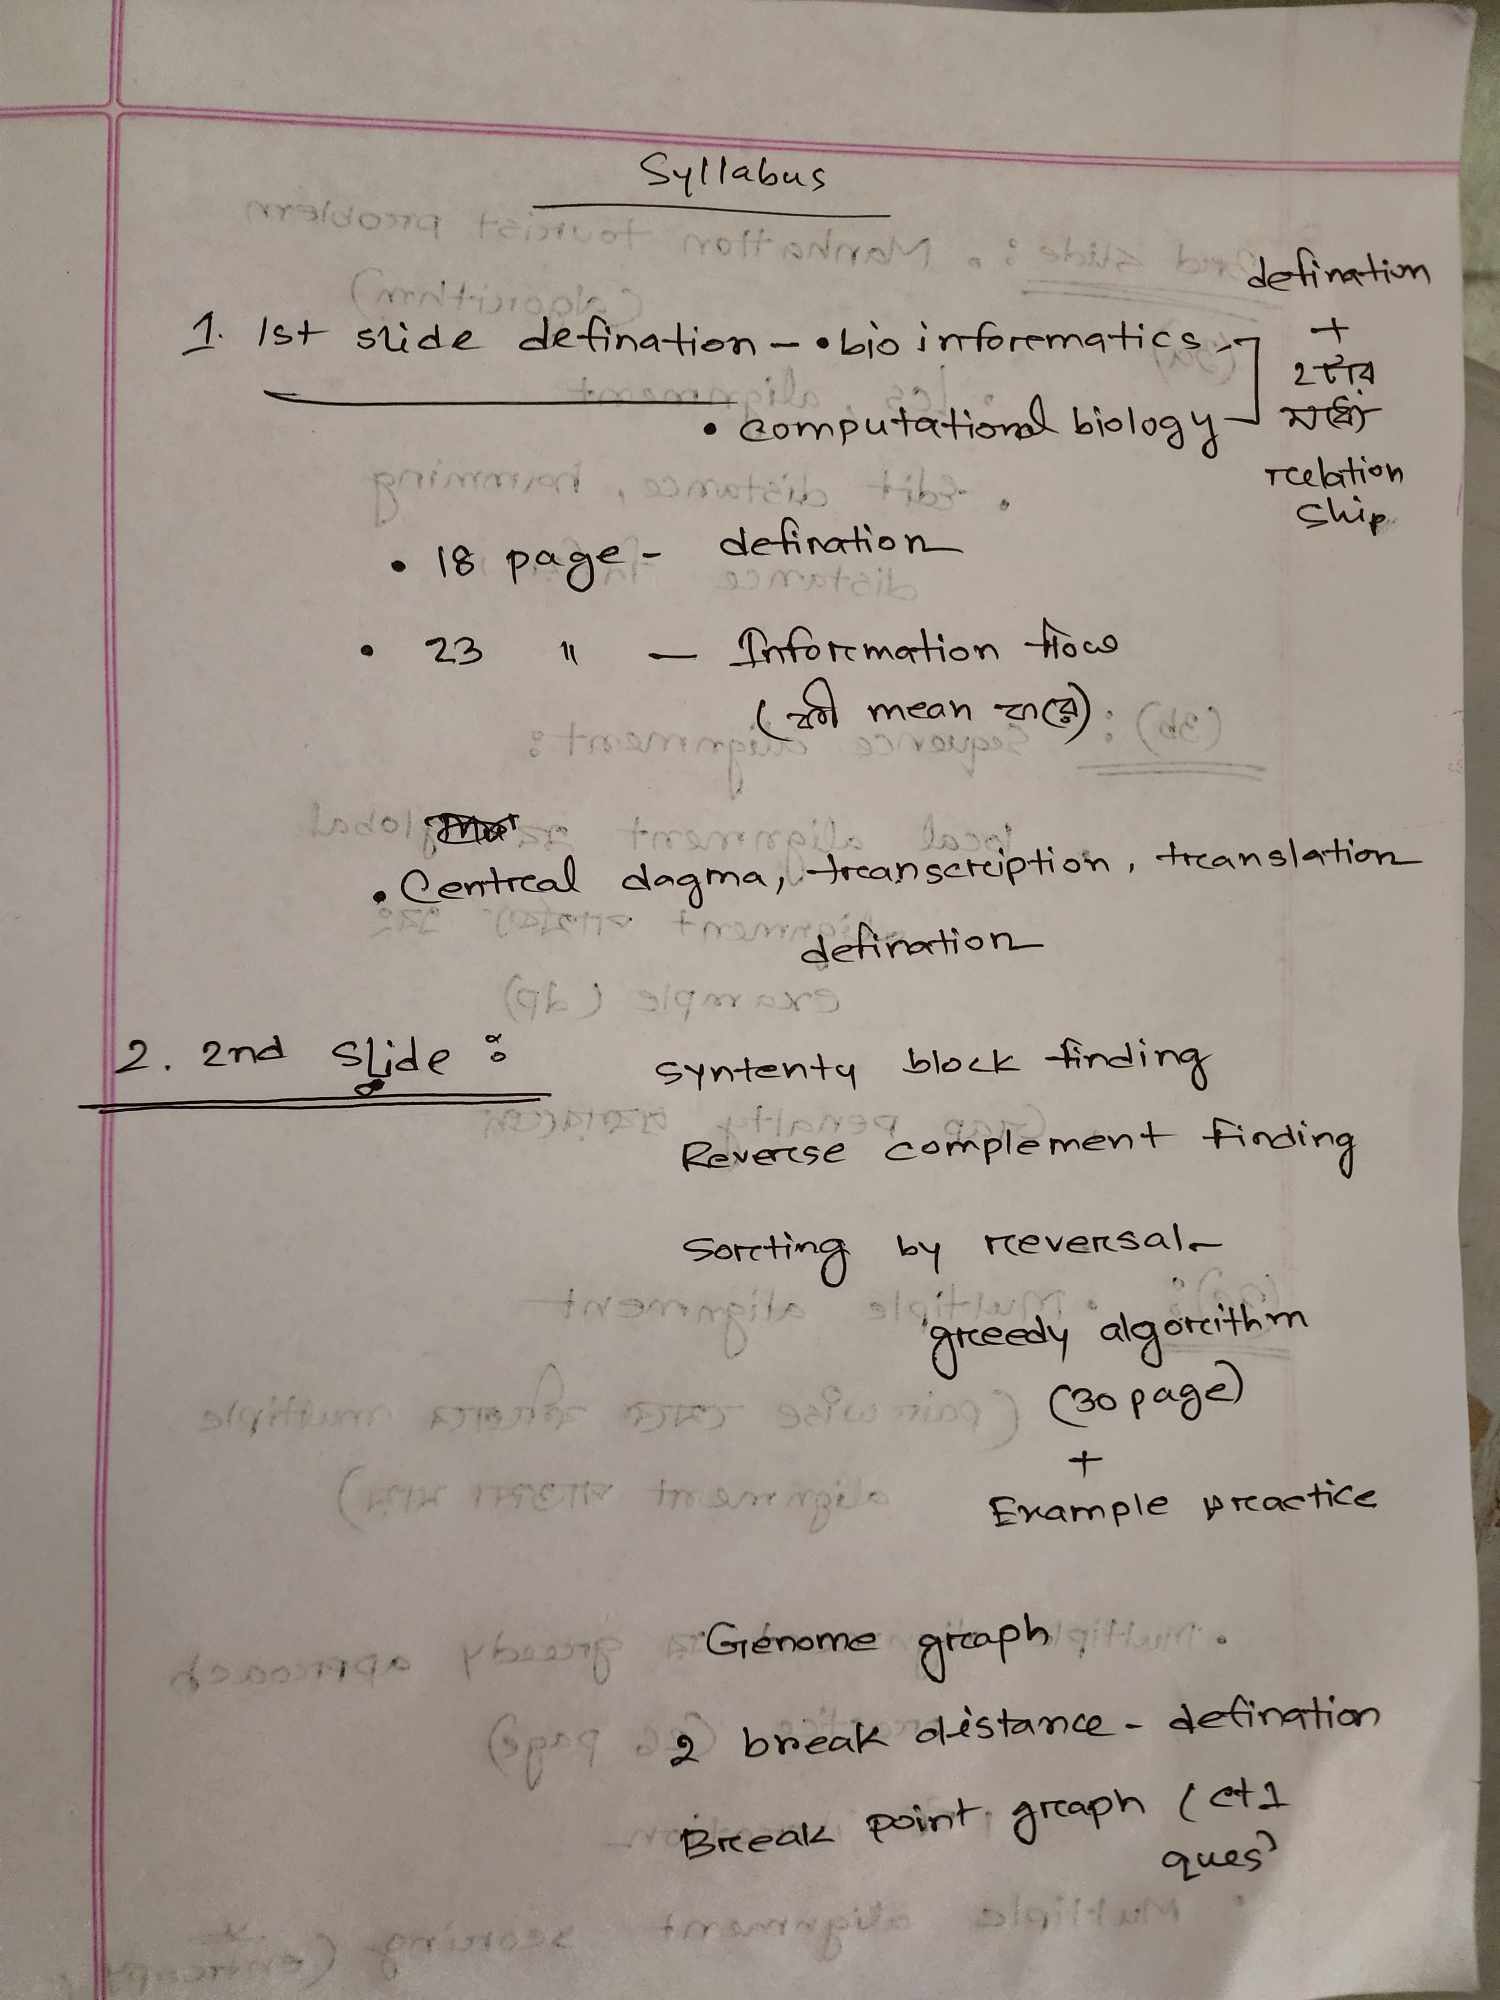 Syllabus
defination
1. 1st slide defination - • bio informatics
+
2টার
• computational biology
মধ্যে
relation
ship
• 18 page - defination
• 23 " - Information flow
(কী mean করে)
• Central dagma, transcription, translation
defination
2. 2nd Slide :
syntenty block finding
Reverse complement finding
Sorting by reversal -
greedy algorithm
(30 page)
+
Example practice
Genome graph
2 break distance - defination
Break point graph (ct1
ques)